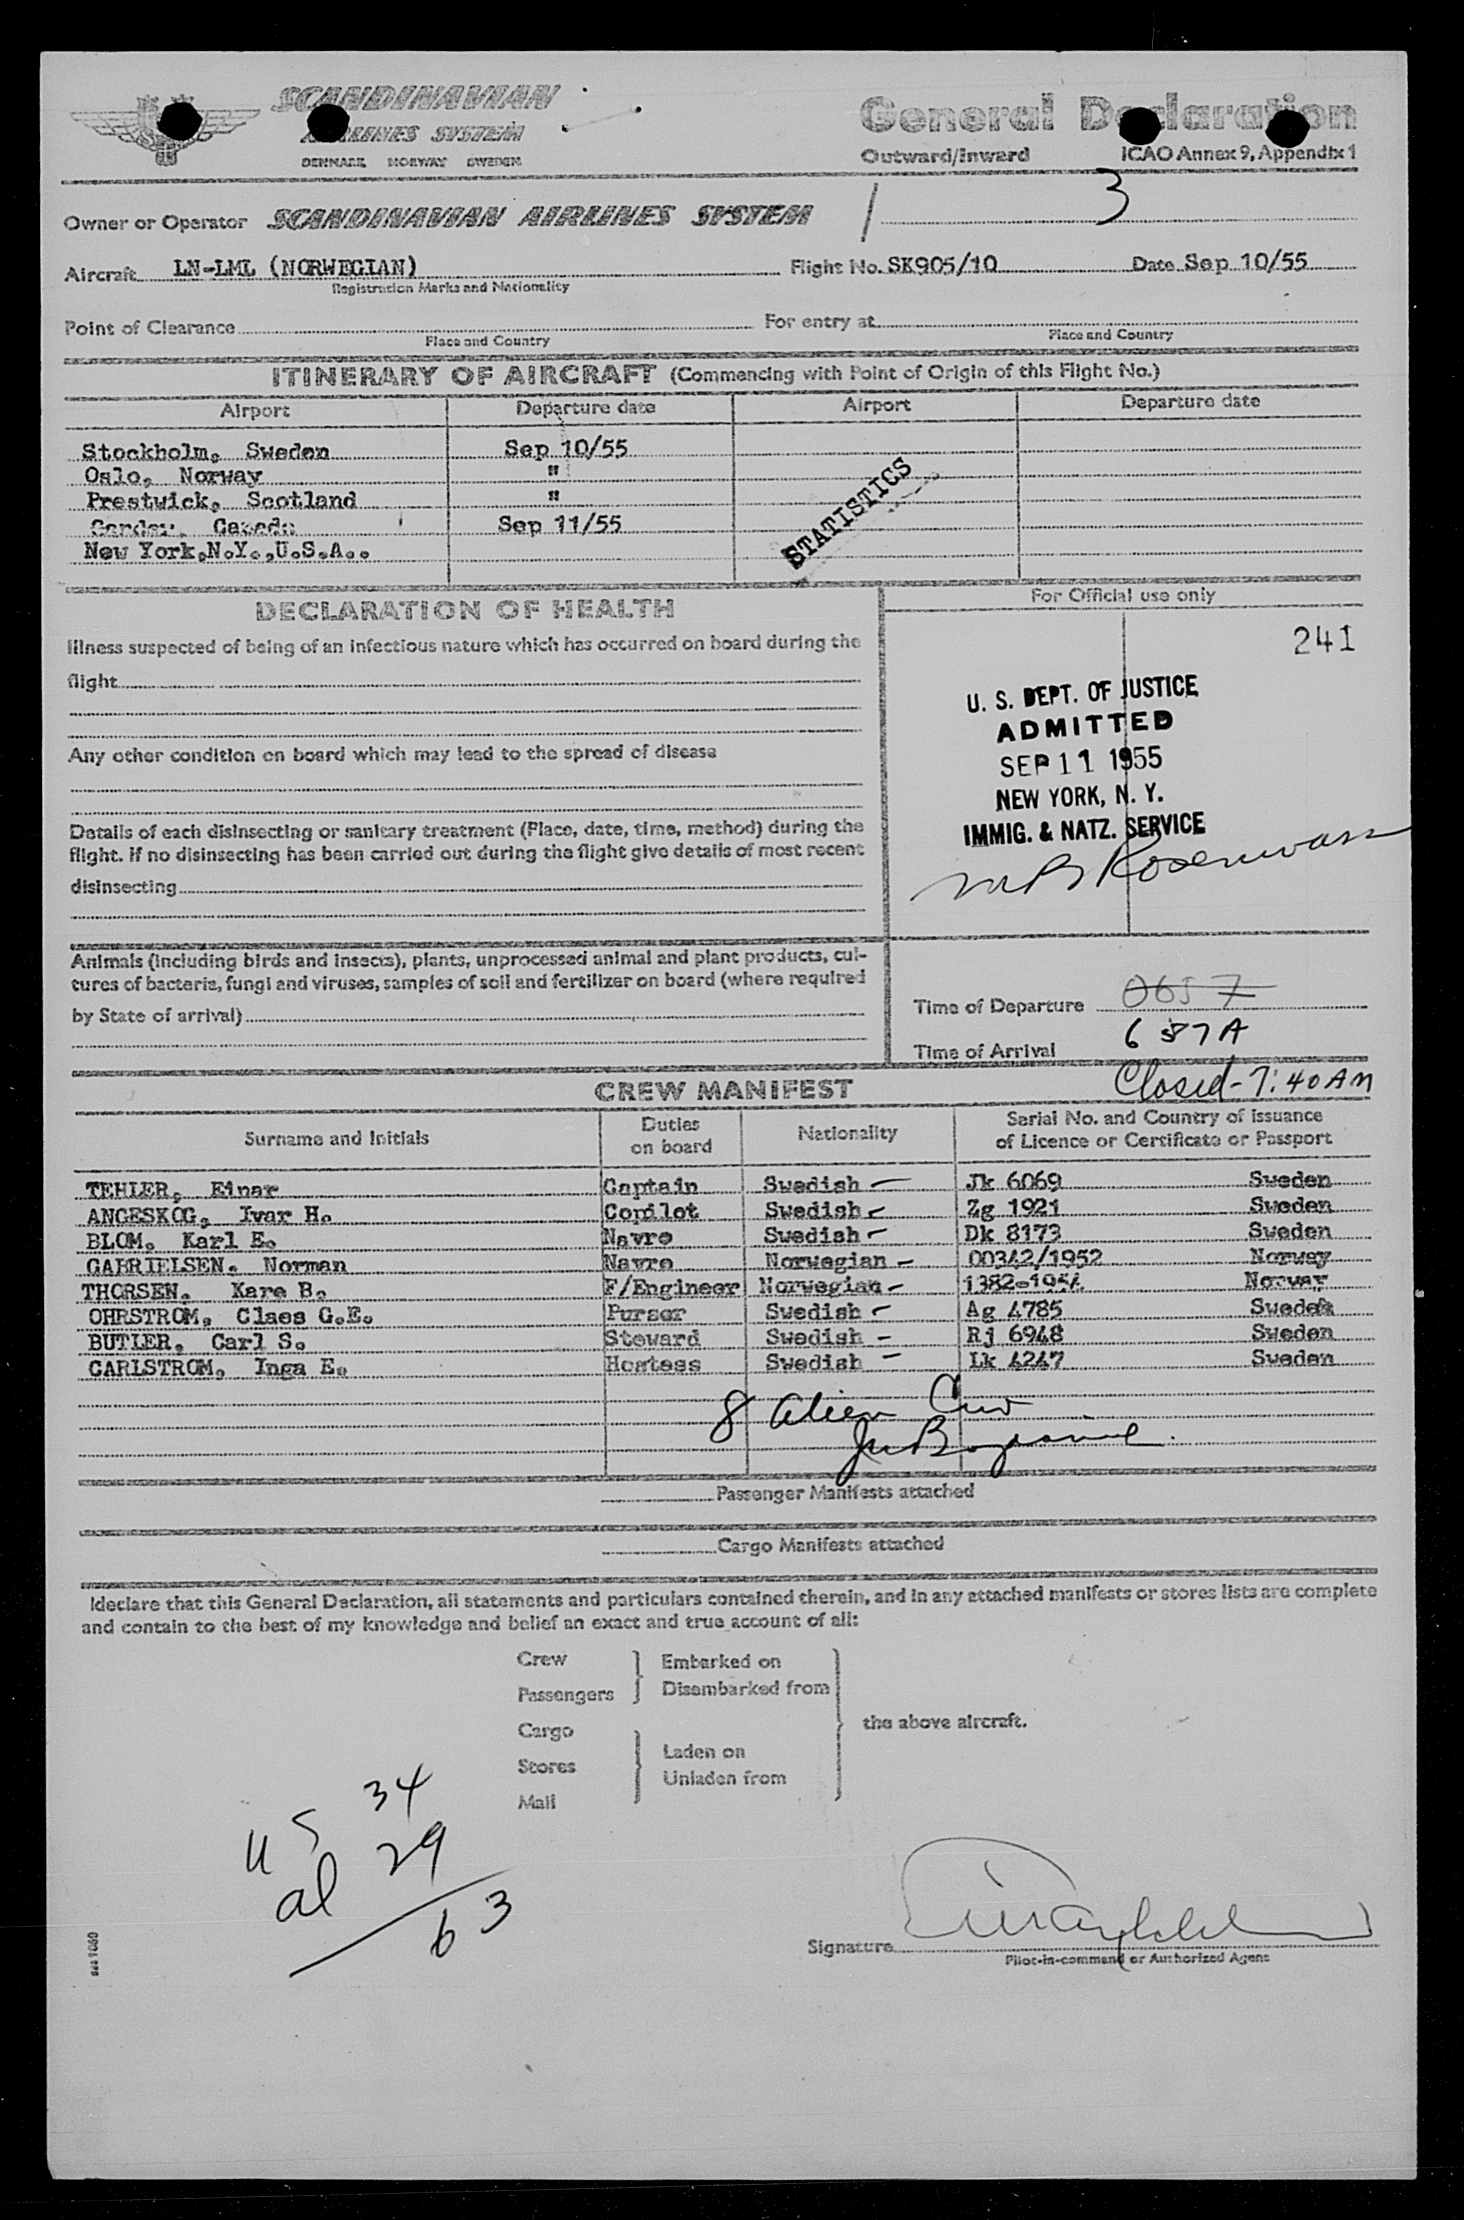 SCANDINAVIAN
AIRLINES SYSTEM
DENMARK NORWAY SWEDEN
General Declaration
Outward/Inward ICAO Annex 9, Appendix 1
3
Owner or Operator SCANDINAVIAN AIRLINES SYSTEM
Aircraft LN-LML (NORWEGIAN) Flight No. SK905/10 Date Sep 10/55
Registration Marks and Nationality
Point of Clearance For entry at
Place and Country Place and Country
ITINERARY OF AIRCRAFT (Commencing with Point of Origin of this Flight No.)
Airport Departure date Airport Departure date
Stockholm, Sweden Sep 10/55
Oslo, Norway "
Prestwick, Scotland "
Canada Sep 11/55
New York,N.Y.,U.S.A..
STATISTICS
DECLARATION OF HEALTH
Illness suspected of being of an infectious nature which has occurred on board during the
flight
Any other condition on board which may lead to the spread of disease
Details of each disinsecting or sanitary treatment (Place, date, time, method) during the
flight. If no disinsecting has been carried out during the flight give details of most recent
disinsecting
Animals (including birds and insects), plants, unprocessed animal and plant products, cul-
tures of bacteria, fungi and viruses, samples of soil and fertilizer on board (where required
by State of arrival)
For Official use only
241
U. S. DEPT. OF JUSTICE
ADMITTED
SEP 11 1955
NEW YORK, N. Y.
IMMIG. & NATZ. SERVICE
Time of Departure 0657
Time of Arrival 657A
Closed - 7:40 AM
CREW MANIFEST
Surname and Initials Duties on board Nationality Serial No. and Country of issuance of Licence or Certificate or Passport
TEHLER, Einar Captain Swedish Jk 6069 Sweden
ANGESKOG, Ivar H. Copilot Swedish Zg 1921 Sweden
BLOM, Karl E. Navro Swedish Dk 8173 Sweden
GABRIELSEN, Norman Navro Norwegian 00342/1952 Norway
THORSEN, Kare B. F/Engineer Norwegian 1382-1954 Norway
OHRSTROM, Claes G.E. Purser Swedish Ag 4785 Sweden
BUTLER, Carl S. Steward Swedish Rj 6948 Sweden
CARLSTROM, Inga E. Hostess Swedish Lk 4247 Sweden
8 Alien Crew
Passenger Manifests attached
Cargo Manifests attached
I declare that this General Declaration, all statements and particulars contained therein, and in any attached manifests or stores lists are complete
and contain to the best of my knowledge and belief an exact and true account of all:
Crew
Passengers
Embarked on
Disembarked from
Cargo
Stores
Mail
Laden on
Unladen from
the above aircraft.
US 34
al 29
63
Signature
Pilot-in-command or Authorized Agent